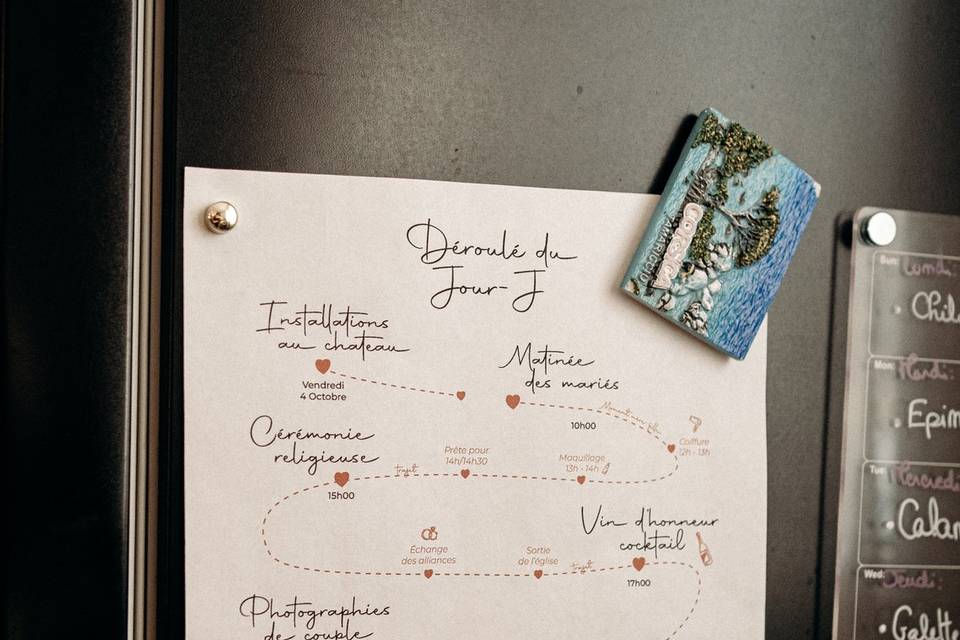 Déroulé du
Jour-J
Installations
au chateau
Vendredi
4 Octobre
Matinée
des mariés
10h00
Coiffure
12h - 13h
Maquillage
13h - 14h
Prête pour
14h/14h30
trajet
Cérémonie
religieuse
15h00
Échange
des alliances
Sortie
de l'église
trajet
Vin d'honneur
cocktail
17h00
Photographies
de couple
CORSICA
Sun:
Lundi:
• Chil
Mon:
Mardi:
• Epin
Tue:
Mercredi
• Calam
Wed:
Jeudi:
• Galett